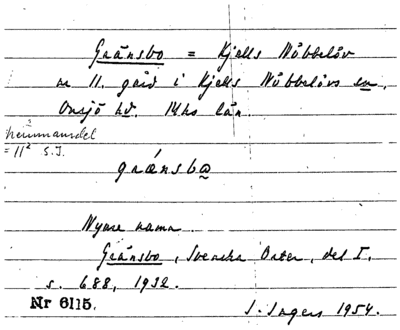 Gränsbo = Kjells Nöbbelöv
nr 11. gård i Kjells Nöbbelövs sn,
Onsjö hd. Mhs län.
hemmansdel
= 11² S.I.
græ´nsbɷ
Nyare namn
Gränsbo, Svenska Orter, del I,
s. 688, 1932.
Nr 6115.
S. Ingers 1954.